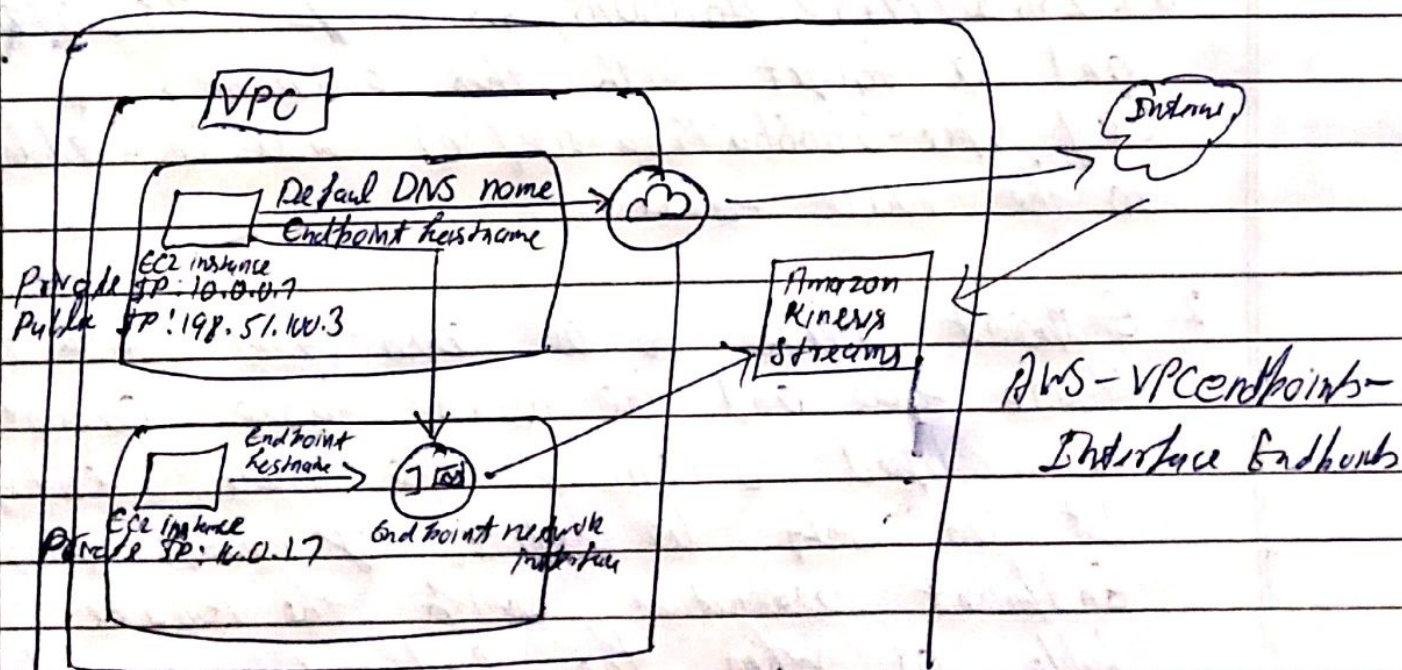 VPC
Interne
Defaul DNS name
Endpoint hostname
EC2 instance
Private IP: 10.0.0.7
Public IP: 198.51.100.3
Amazon
Kinesis
Streams
AWS-VPC endpoints-
Interface Endpoints
Endpoint
hostname
EC2 instance
Private IP: 10.0.1.7
Endpoint network
interface